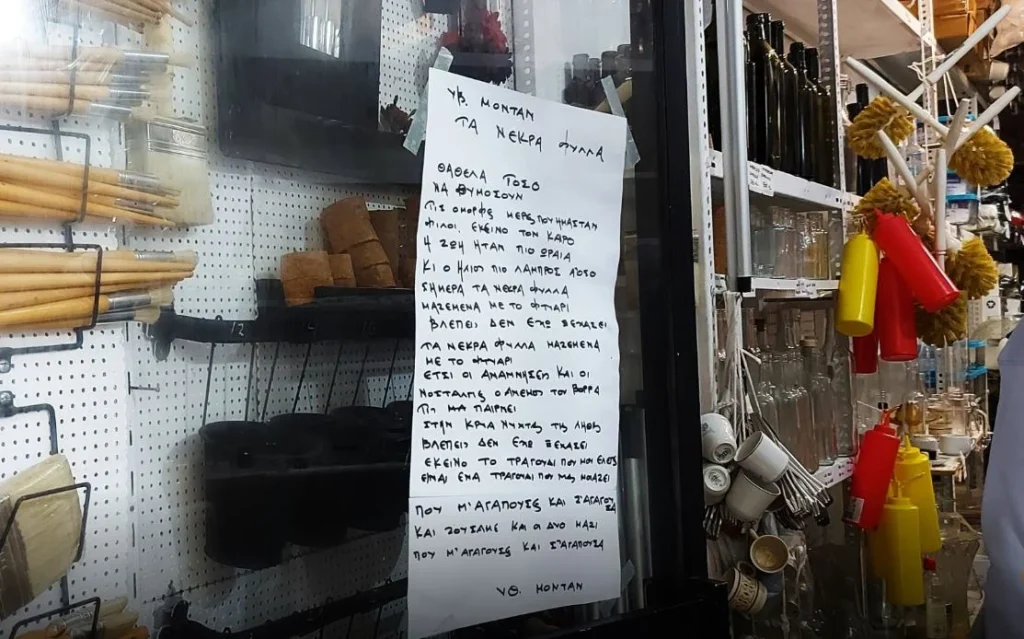 ΥΒ. ΜΟΝΤΑΝ
ΤΑ ΝΕΚΡΑ ΦΥΛΛΑ
ΘΑΘΕΛΑ ΤΟΣΟ
ΝΑ ΘΥΜΟΣΟΥΝ
ΤΙΣ ΟΜΟΡΦΕΣ ΜΕΡΕΣ ΠΟΥ ΗΜΑΣΤΑΝ
ΦΙΛΟΙ. ΕΚΕΙΝΟ ΤΟΝ ΚΑΙΡΟ
Η ΖΩΗ ΗΤΑΝ ΠΙΟ ΩΡΑΙΑ
ΚΙ Ο ΗΛΙΟΣ ΠΙΟ ΛΑΜΠΡΟΣ
ΣΗΜΕΡΑ ΤΑ ΝΕΚΡΑ ΦΥΛΛΑ
ΜΑΖΕΜΕΝΑ ΜΕ ΤΟ ΦΤΥΑΡΙ
ΒΛΕΠΕΙΣ ΔΕΝ ΕΧΩ ΞΕΧΑΣΕΙ
ΤΑ ΝΕΚΡΑ ΦΥΛΛΑ ΜΑΖΕΜΕΝΑ
ΜΕ ΤΟ ΦΤΥΑΡΙ
ΕΤΣΙ ΟΙ ΑΝΑΜΝΗΣΕΙΣ ΚΑΙ ΟΙ
ΝΟΣΤΑΛΓΙΕΣ Ο ΑΝΕΜΟΣ ΤΟΥ ΒΟΡΡΑ
ΤΙΣ ΠΑΙΡΝΕΙ
ΣΤΗΝ ΚΡΥΑ ΝΥΧΤΑ ΤΗΣ ΛΗΘΗΣ
ΒΛΕΠΕΙΣ ΔΕΝ ΕΧΩ ΞΕΧΑΣΕΙ
ΕΚΕΙΝΟ ΤΟ ΤΡΑΓΟΥΔΙ ΠΟΥ ΜΟΥ ΕΛΕΓΕΣ
ΕΙΝΑΙ ΕΝΑ ΤΡΑΓΟΥΔΙ ΠΟΥ ΜΑΣ ΜΟΙΑΖΕΙ
ΠΟΥ Μ'ΑΓΑΠΟΥΣΕΣ ΚΑΙ
ΚΑΙ ΖΟΥΣΑΜΕ ΚΑΙ ΟΙ ΔΥΟ ΜΑΖΙ
ΠΟΥ Μ'ΑΓΑΠΟΥΣΕΣ ΚΑΙ Σ'ΑΓΑΠΟΥΣΑ
ΥΒ. ΜΟΝΤΑΝ
12